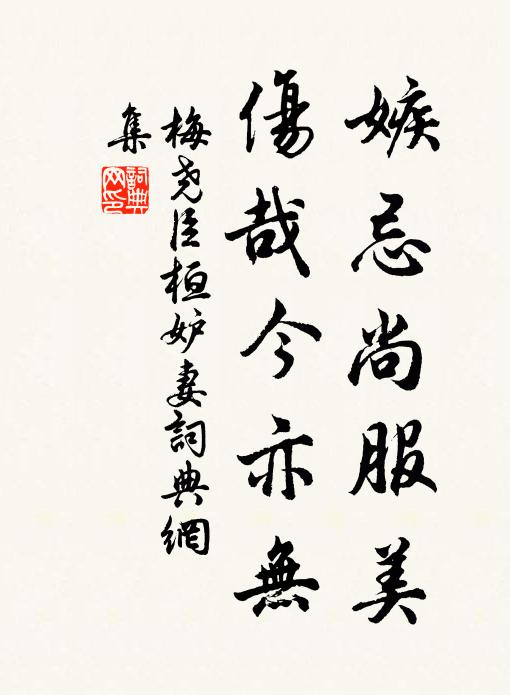 嫉忌尚服美
傷哉今亦無
梅堯臣桓妒妻詞典網
集
詞典
网印